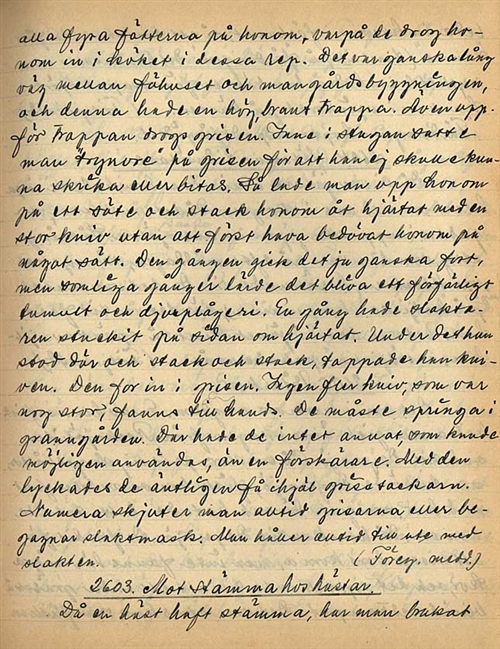 alla fyra fötterna på honom, varpå de drog ho-
nom in i köket i dessa rep. Det var ganska lång
väg mellan fähuset och mangårdsbyggningen,
och denna hade en hög, brant trappa. Även upp-
för trappan drogs grisen. Inne i stugan satte
man "trynore" på grisen för att han ej skulle kun-
na skrika eller bitas. Så lade man upp honom
på ett säte och stack honom åt hjärtat med en
stor kniv utan att först hava bedövat honom på
något sätt. Den gången gick det ju ganska fort,
men somliga gånger lärde det bliva ett förfärligt
tumult och djurplågeri. En gång hade slakta-
ren stuckit på sidan om hjärtat. Under det han
stod där och stack och stack, tappade han kni-
ven. Den for in i grisen. Ingen fler kniv, som var
nog stor, fanns till hands. De måste springa i
granngården. Där hade de intet annat, som kunde
möjligen användas, än en förskärare. Med den
lyckades de äntligen få ihjäl grisstackarn.
Numera skjuter man alltid grisarna eller be-
gagnar slaktmask. Man håller alltid till ute med
slakten. (Föreg. medd.)
2603. Mot stämma hos hästar.
Då en häst haft stämma, har man brukat